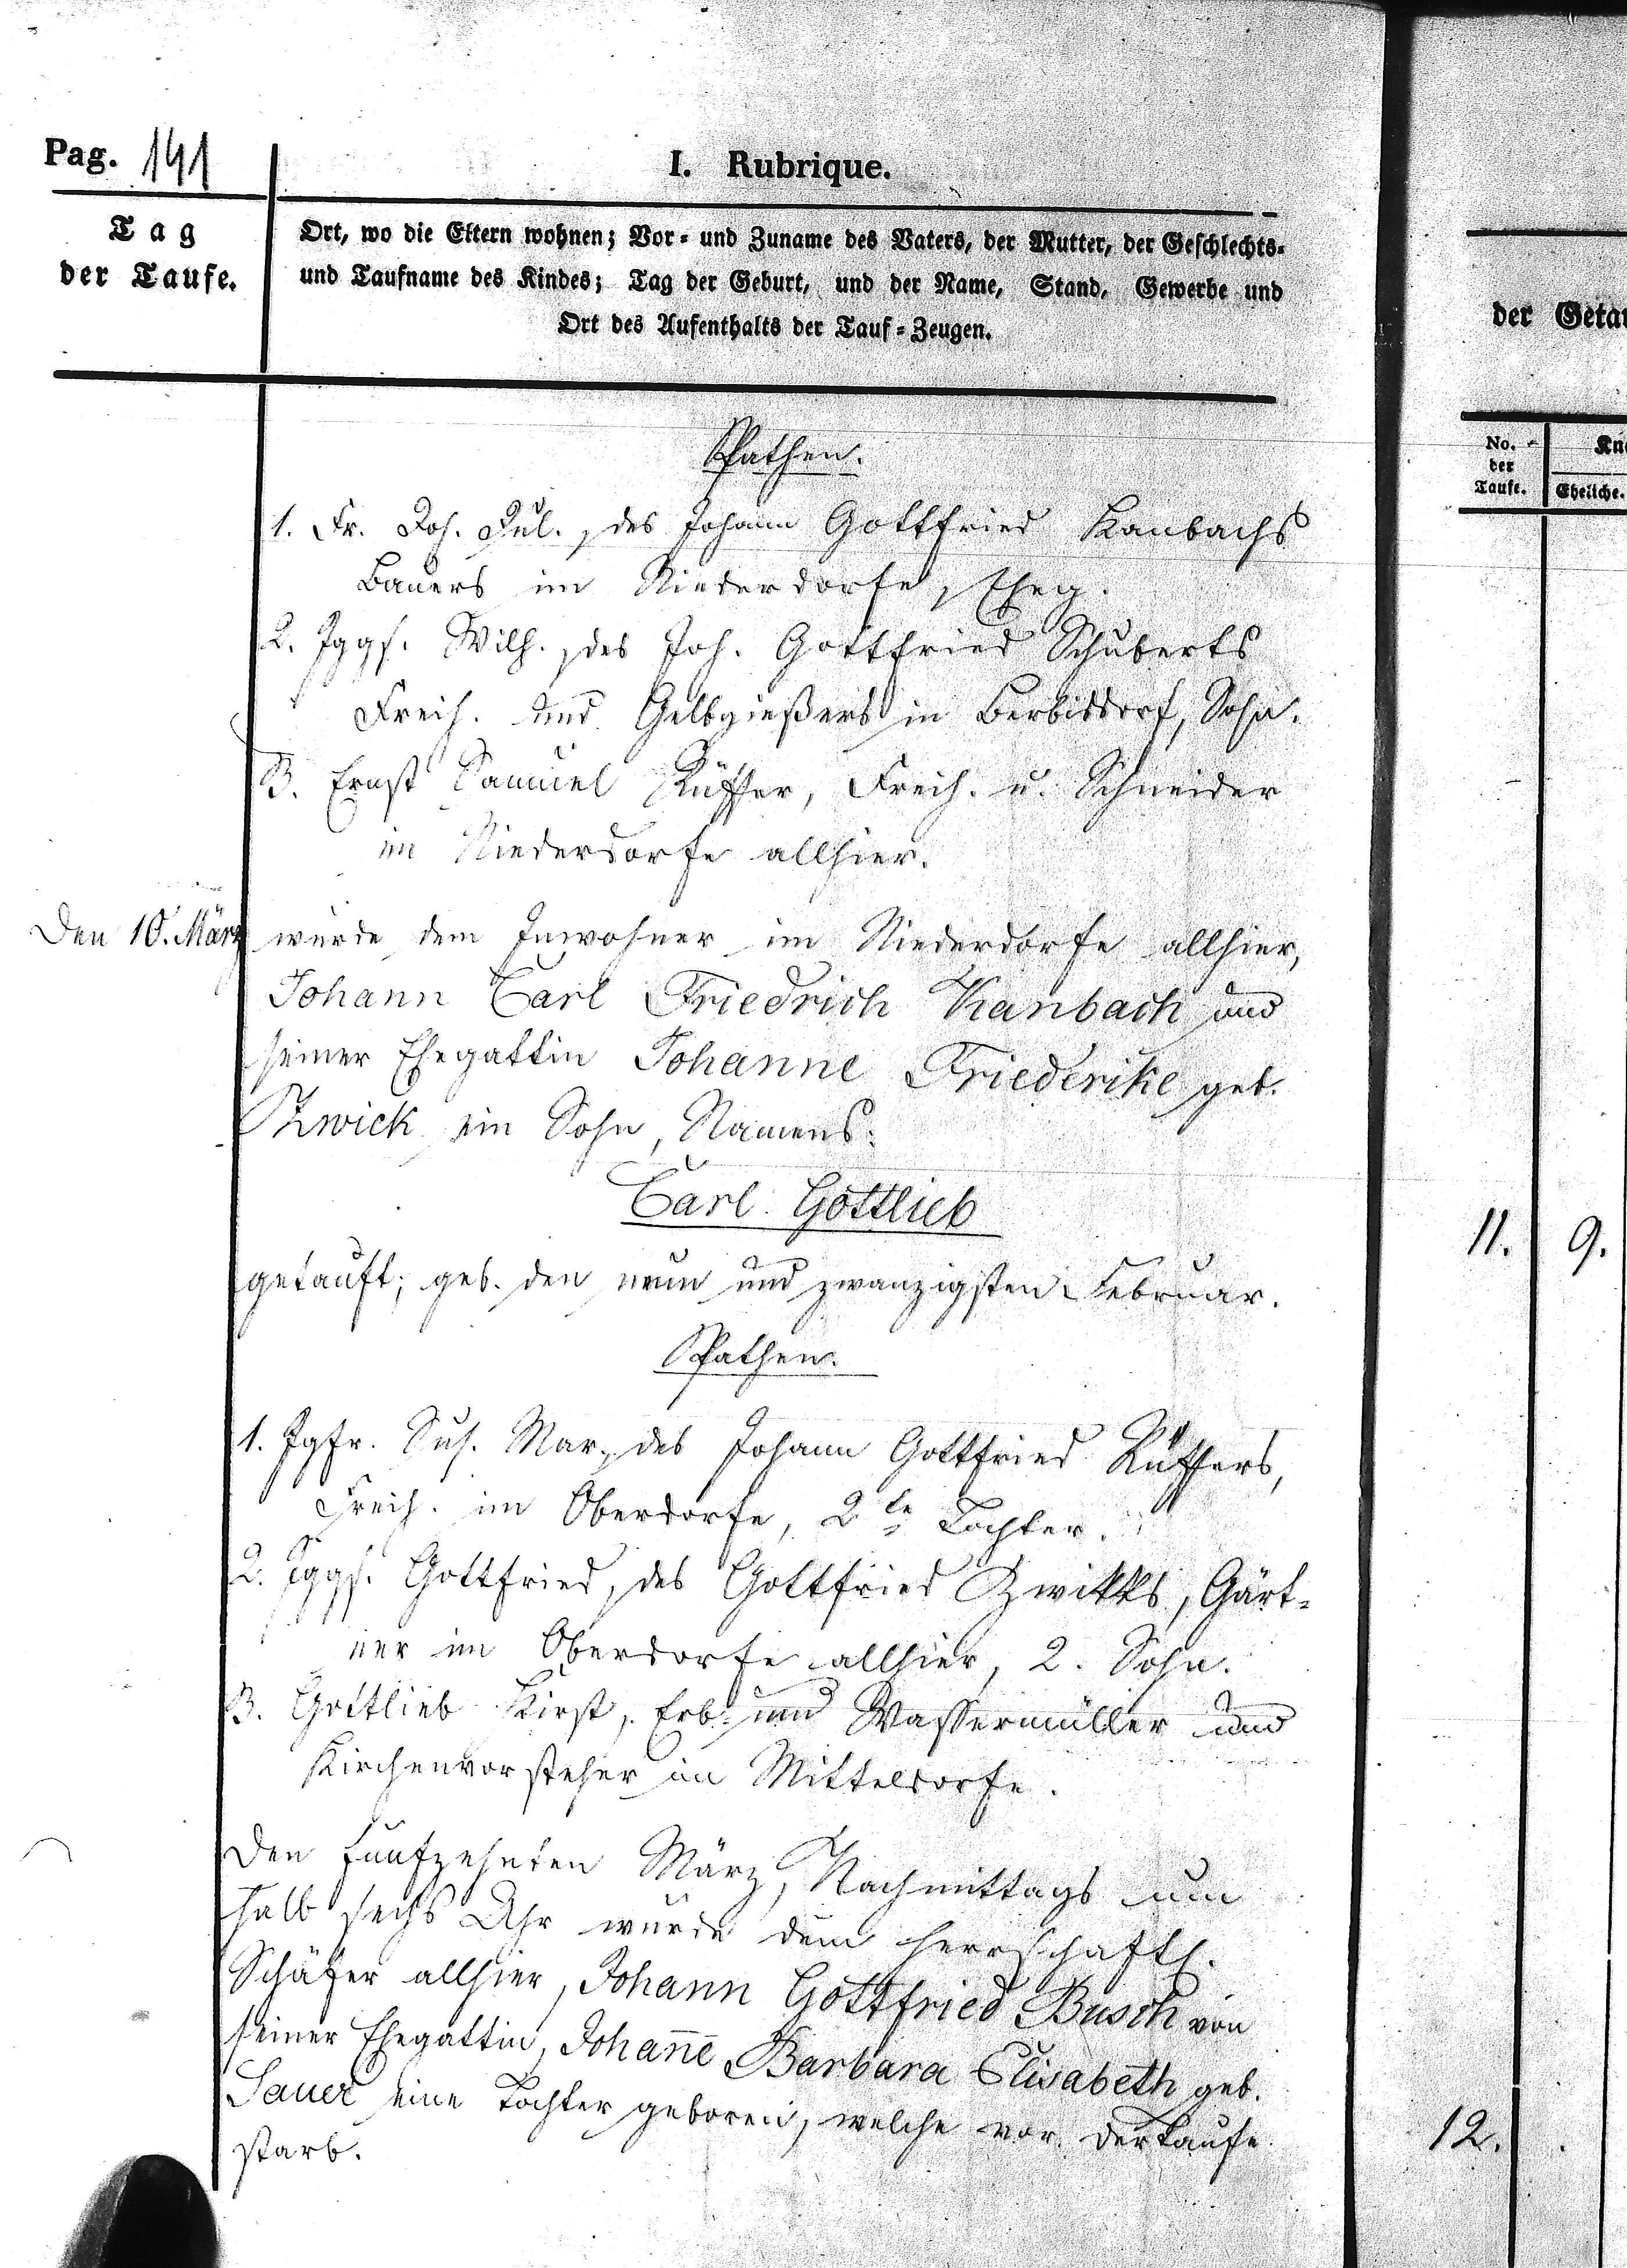 Pag. 141
I. Rubrique.
Tag
der Taufe.
Ort, wo die Eltern wohnen; Vor- und Zuname des Vaters, der Mutter, der Geschlechts-
und Taufname des Kindes; Tag der Geburt, und der Name, Stand, Gewerbe und
Ort des Aufenthalts der Tauf-Zeugen.
der Getau
No.
der
Taufe.
Kna
Eheliche.
Pathen.
1. Fr. Joh. Jul., des Johann Gottfried Kanbachs
Bauers im Niederdorfe, Eheg.
2. Jggs. Wilh., des Joh. Gottfried Schuberts
Freih. und Gelbgießers in Berbisdorf, Sohn.
3. Ernst Samuel Rüffer, Freih. u. Schneider
im Niederdorfe allhier.
Den 10. März wurde dem Inwohner im Niederdorfe allhier,
Johann Carl Friedrich Kanbach und
seiner Ehegattin Johanne Friederike geb.
Zwick ein Sohn, Namens:
Carl Gottlieb
11. 9.
getauft; geb. den neun und zwanzigsten Februar.
Pathen.
1. Jgfr. Sus. Mar., des Johann Gottfried Rüffers,
Freih. im Oberdorfe, 2te Tochter.
2. Jggs. Gottfried, des Gottfried Zwikks, Gärt-
ner im Oberdorfe allhier, 2. Sohn.
3. Gottlieb Kirst, Erb- und Wassermüller und
Kirchenvorsteher im Mitteldorfe.
Den funfzehnten März, Nachmittags um
halb sechs Uhr wurde dem herrschaftl.
Schäfer allhier, Johann Gottfried Busch von
seiner Ehegattin, Johan̅e Barbara Elisabeth geb.
Sauer eine Tochter geboren, welche vor der Taufe
starb.
12.